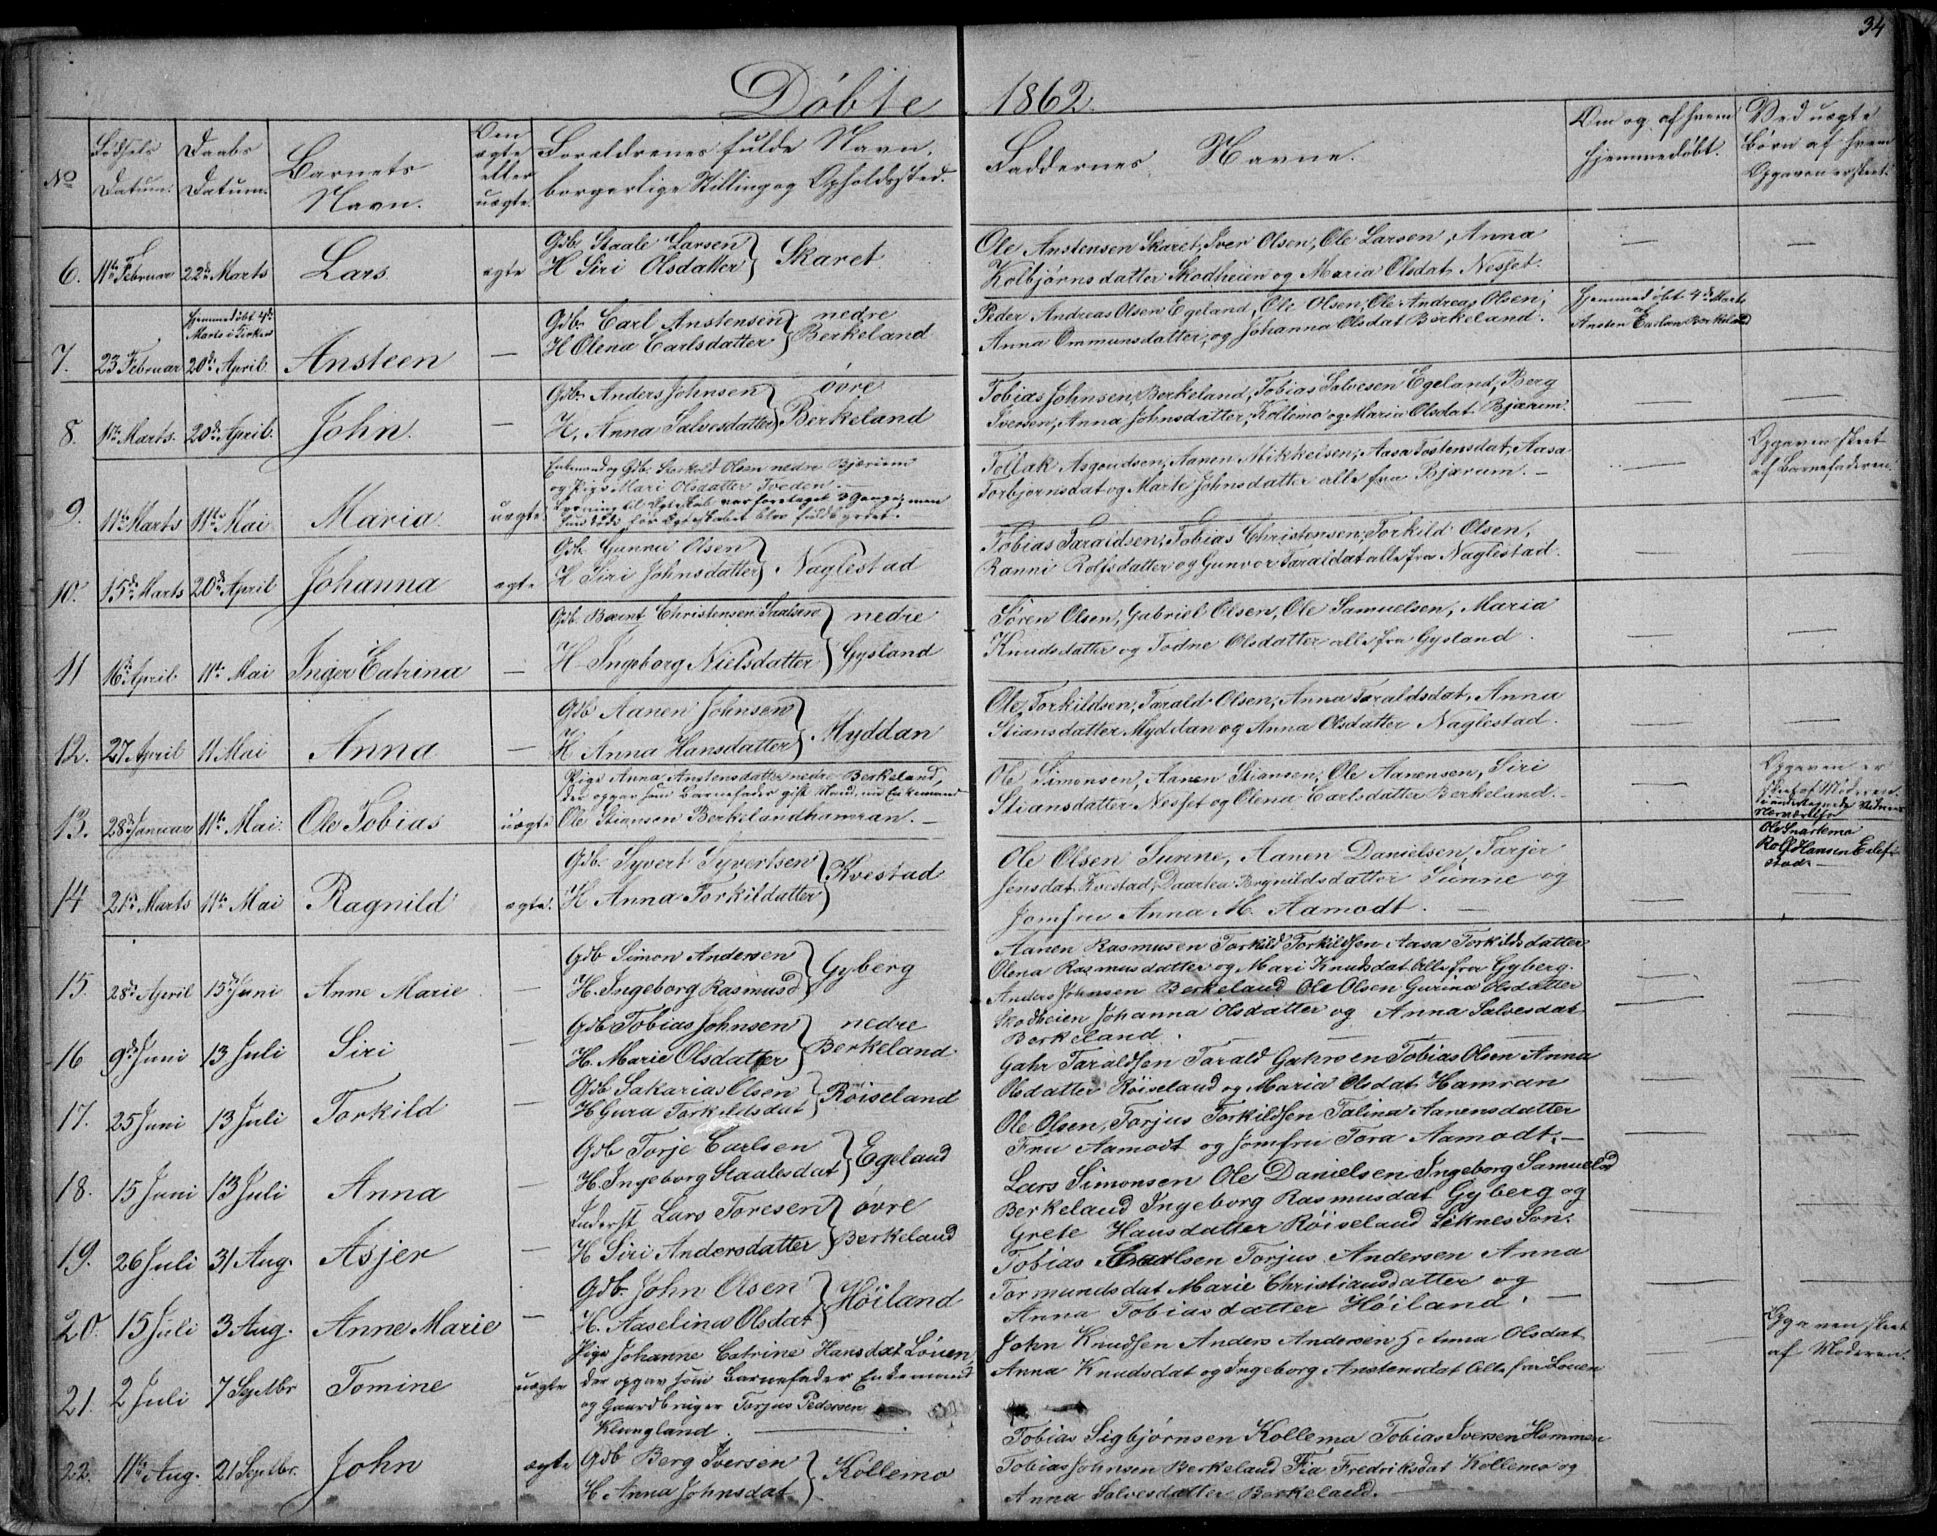 34
Döbte 1862.
No
Fødsels Datum.
Daabs Datum.
Barnets Navn.
Om ægte eller uægte.
Forældrenes fulde Navn, borgerlige Stilling og Opholdssted.
Faddernes Navne.
Om og af hvem hjemmedøbt.
Ved uægte Børn af hvem Opgaven er skeet.
6. 11te Februar 22de Marts Lars ægte
Gdb. Staale Larsen
H Siri Olsdatter } Skaret
Ole Anstensen Skaret, Iver Olsen, Ole Larsen, Anna
Kolbjørnsdatter Skodheien og Maria Olsdat. Nesset.
— —
Hjemmedøbt 4de
Marts i Kirken
7. 23 Februar 20de April. Ansteen —
Gdb. Carl Anstensen
H Olena Carlsdatter } nedre Berkeland
Peder Andreas Olsen Egeland, Ole Olsen, Ole Andreas Olsen,
Anna Ommunsdatter, og Johanna Olsdat Berkeland.
Hjemmedøbt 4de Marts
af Ansten Carlsen Berkeland
8. 1ste Marts. 20de April. John. —
Gdb. Anders Johnsen
H. Anna Salvesdatter } øvre Berkeland
Tobias Johnsen, Berkeland, Tobias Salvesen Egeland, Berg
Iversen, Anna Johnsdatter, Kollemo og Maria Olsdat. Bjærum.
— —
9. 11te Marts 11te Mai Maria uægte.
Enkemand og Gdb. Torkild Olsen nedre Bjærum
og Pige Mari Olsdatter Tveden.—
Lysning til Ægteskab var foretaget 3 Gange, men
hun døde før Ægteskabet blev fuldbyrdet.
Tollak Asgoudsen, Aanen Mikkelsen, Aasa Tostensdat, Aasa
Torbjornsdat og Marte Johnsdatter alle fra Bjærum. —
—
Opgaven skeet
af Barnefaderen.
10. 15de Marts 20de April Johanna ægte
Gdb. Gunnu Olsen
H Siri Johnsdatter } Naglestad
Tobias Taraldsen, Tobias Christensen, Torkild Olsen,
Ranni Rolfsdatter og Gunvor Taraldsdat alle fra Naglestad.
—
11 16de April. 11te Mai Inger Catrina —
Gdb. Bernt Christensen
H Ingeborg Nielsdatter } nedre Gysland
Søren Olsen, Gabriel Olsen, Ole Samuelsen, Maria
Knudsdatter og Todne Olsdatter alle fra Gysland.
— —
12. 27 April 11 Mai Anna —
Gdb Aanen Johnsen
H Anna Hansdatter } Myddan
Ole Torkildsen, Tarald Olsen, Anna Taraldsdat, Anna
Stiansdatter Myddan og Anna Olsdatter Naglestad.
— —
13. 28de Januar 11te Mai. Ole Tobias uægte
Pige Anna Anstensdatter nedre Berkeland,
der opgav som Barnefader gift Mand, nu Enkemand
Ole Stiansen Berkelandhamran. —
Ole Simonsen, Aanen Stiansen, Ole Aanensen, Siri
Stiansdatter Nesset og Olena Carlsdatter Berkeland.—
—
Opgaven er
skeet af Moderen
i undertegnede Vidners
Nærværelse
Ole Snartemo
Rolf Hansen Eilef-
stad. —
14 21de Marts 11te Mai Ragnild ægte.
Gdb. Syvert Syvertsen
H Anna Torkildatter } Kvestad
Ole Olsen Sunne, Aanen Danielsen, Tarjer
Jensdat Kvestad, Daartea Brynildsdatter Sunne og
Jomfru Anna M. Aamodt. —
— —
15. 28de April 15de Juni Anne Marie —
Gdb Simon Andersen
H. Ingeborg Rasmusd } Gyberg
Aanen Rasmusen Torkild Torkildsen Aasa Torkildsdatter
Olena Rasmusdatter og Mari Knudsdat Alle fra Gyberg.
— —
16 9de Juni 13 Juli Siri —
Gdb Tobias Johnsen
H. Marie Olsdatter } nedre Berkeland
Anders Johnsen Berkeland Ole Olsen Gurina Olsdatter
Skodheien Johanna Olsdatter og Anna Salvesdat
Berkeland.
— —
17. 25 Juni 13 Juli Torkild —
Gdb Sakarias Olsen
H Gura Torkildsdat } Røiseland
Gahr Taraldsen Tarald Gahrsen Tobias Olsen Anna
Olsdatter Røiseland og Maria Olsdat Hamran
— —
18. 15 Juni 13 Juli Anna —
Gdb Torje Carlsen
H. Ingeborg Staalesdat } Egeland
Ole Olsen, Torjus Torkildsen Talina Aanensdatter
Fru Aamodt og Jomfru Tora Aamodt.—
— —
19. 26 Juli 31 Aug. Asjer —
Inderst Lars Toresen
H Siri Andersdatter } øvre Berkeland
Lars Simonsen Ole Danielsen Ingeborg Samuelsd
Berkeland Ingeborg Rasmusdat Gyberg og
Grete Hansdatter Røiseland
— —
20. 15 Juli 3 Aug. Anne Marie —
Gdb. John Olsen
H. Aaselina Olsdat } Høiland
Tobias Carlsen Torjus Andersen Anna
Tormundsdat Marie Christiansdatter og
Anna Tobiasdatter Høiland. —
—
21. 2 Juli 7 Septbr Tomine uægte
Pige Johanne Catrine Hansdat Løuen,
der opgav som Barnefader Enkemand
og Gaardbruger Torjus Pedersen
Klungland. —
John Knudsen Anders Andersen, Anna Olsdat
Anna Knudsdat og Ingeborg Anstensdat Alle fra Louen
—
Opgaven skeet
af Moderen.
22. 11te Aug. 21 Septbr. John ægte
Gdb Berg Iversen
H Anna Johnsdat } Kollemo
Tobias Sigbjørnsen Kollemo Tobias Iversen Hommen
Tobias Johnsen Berkeland Fia Fredriksdat Kollemo og
Anna Salvesdatter Berkeland.
— —